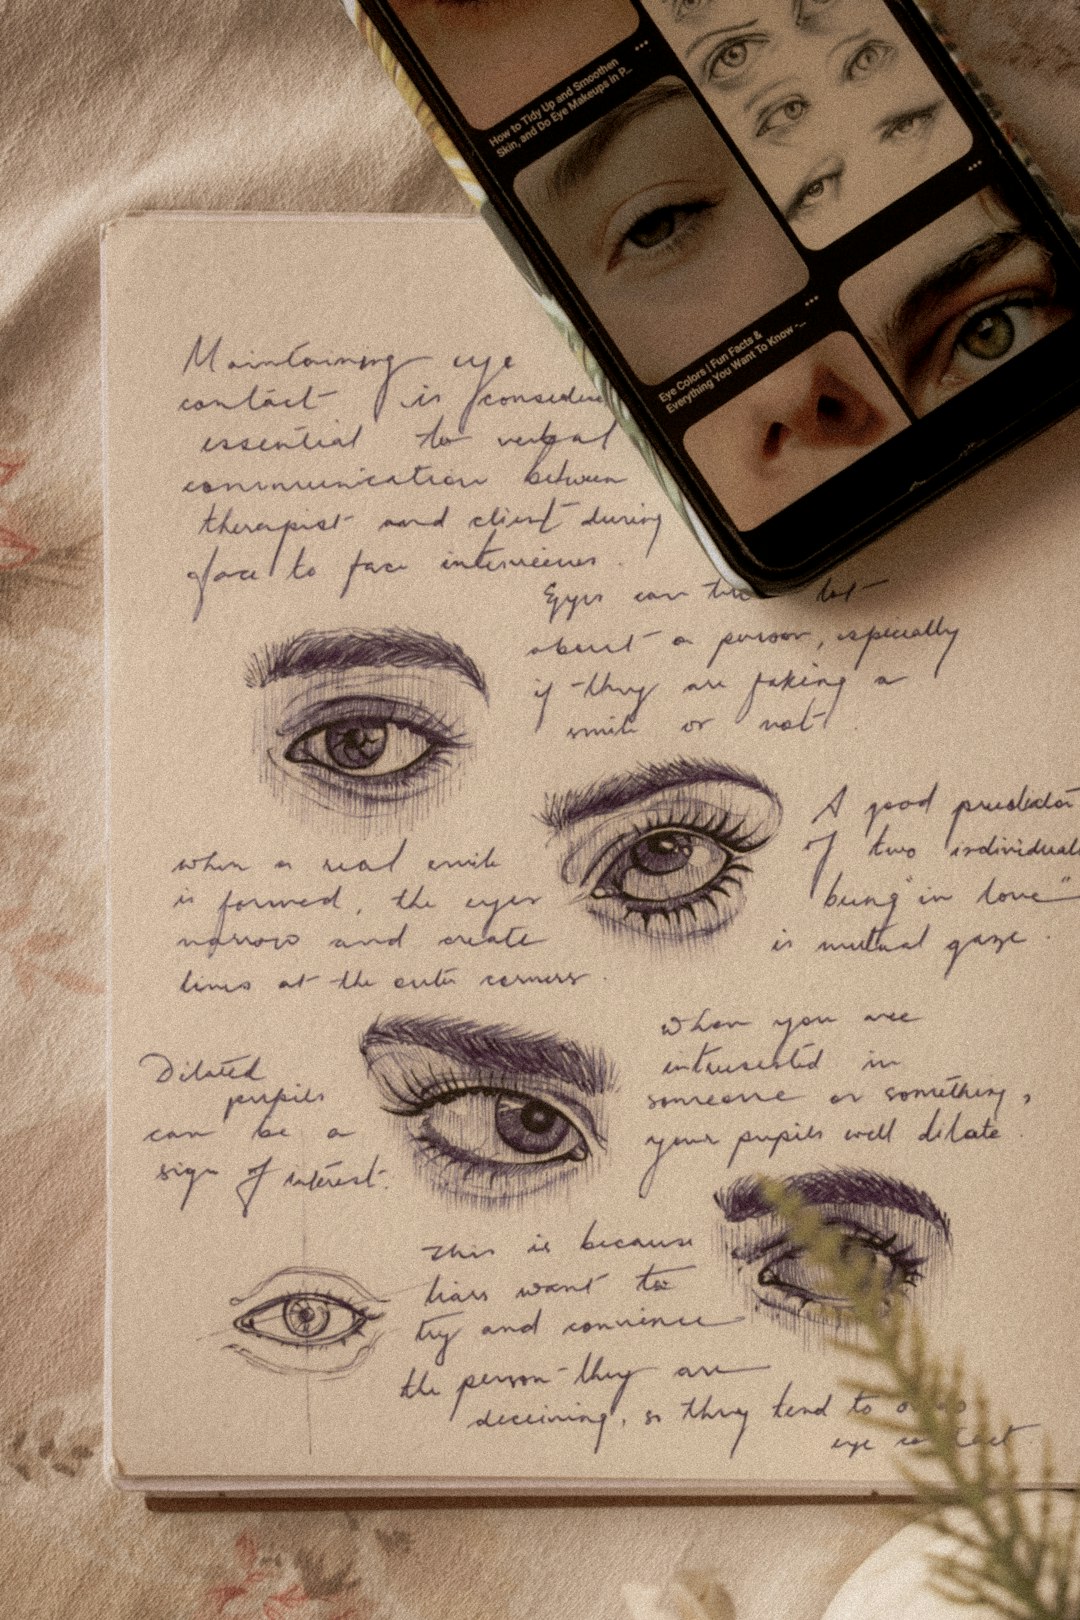 How to Tidy Up and Smoothen
Skin, and Do Eye Makeups in P...
Eye Colors | Fun Facts &
Everything You Want To Know -...
Maintaining eye
contact is
essential to verbal
communication between
therapist and client during
face to face interviews.
Eyes can lot
about a person, especially
if they are faking a
smile or not.
A good
of two individuals
being "in love"
is mutual gaze.
when a real smile
is formed, the eyes
narrow and create
lines at the outer corners.
When you are
in
someone or something,
your pupils will dilate.
Dilated
pupils
can be a
sign of interest.
This is because
liars want to
try and convince
the person they are
deceiving, so they tend to
eye contact.